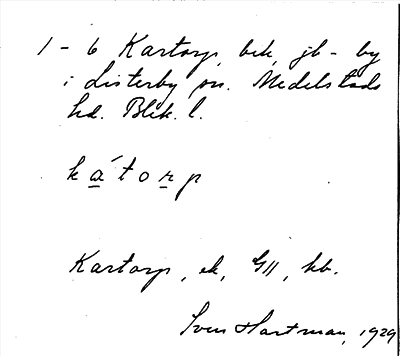 1 - 6 Kartorp, bek, jb - by
i Listerby sn. Medelstads
hd. Blek. l.
ká̱toṟp
Kartorp, ek, GII, hb.
Sven Hartman, 1929